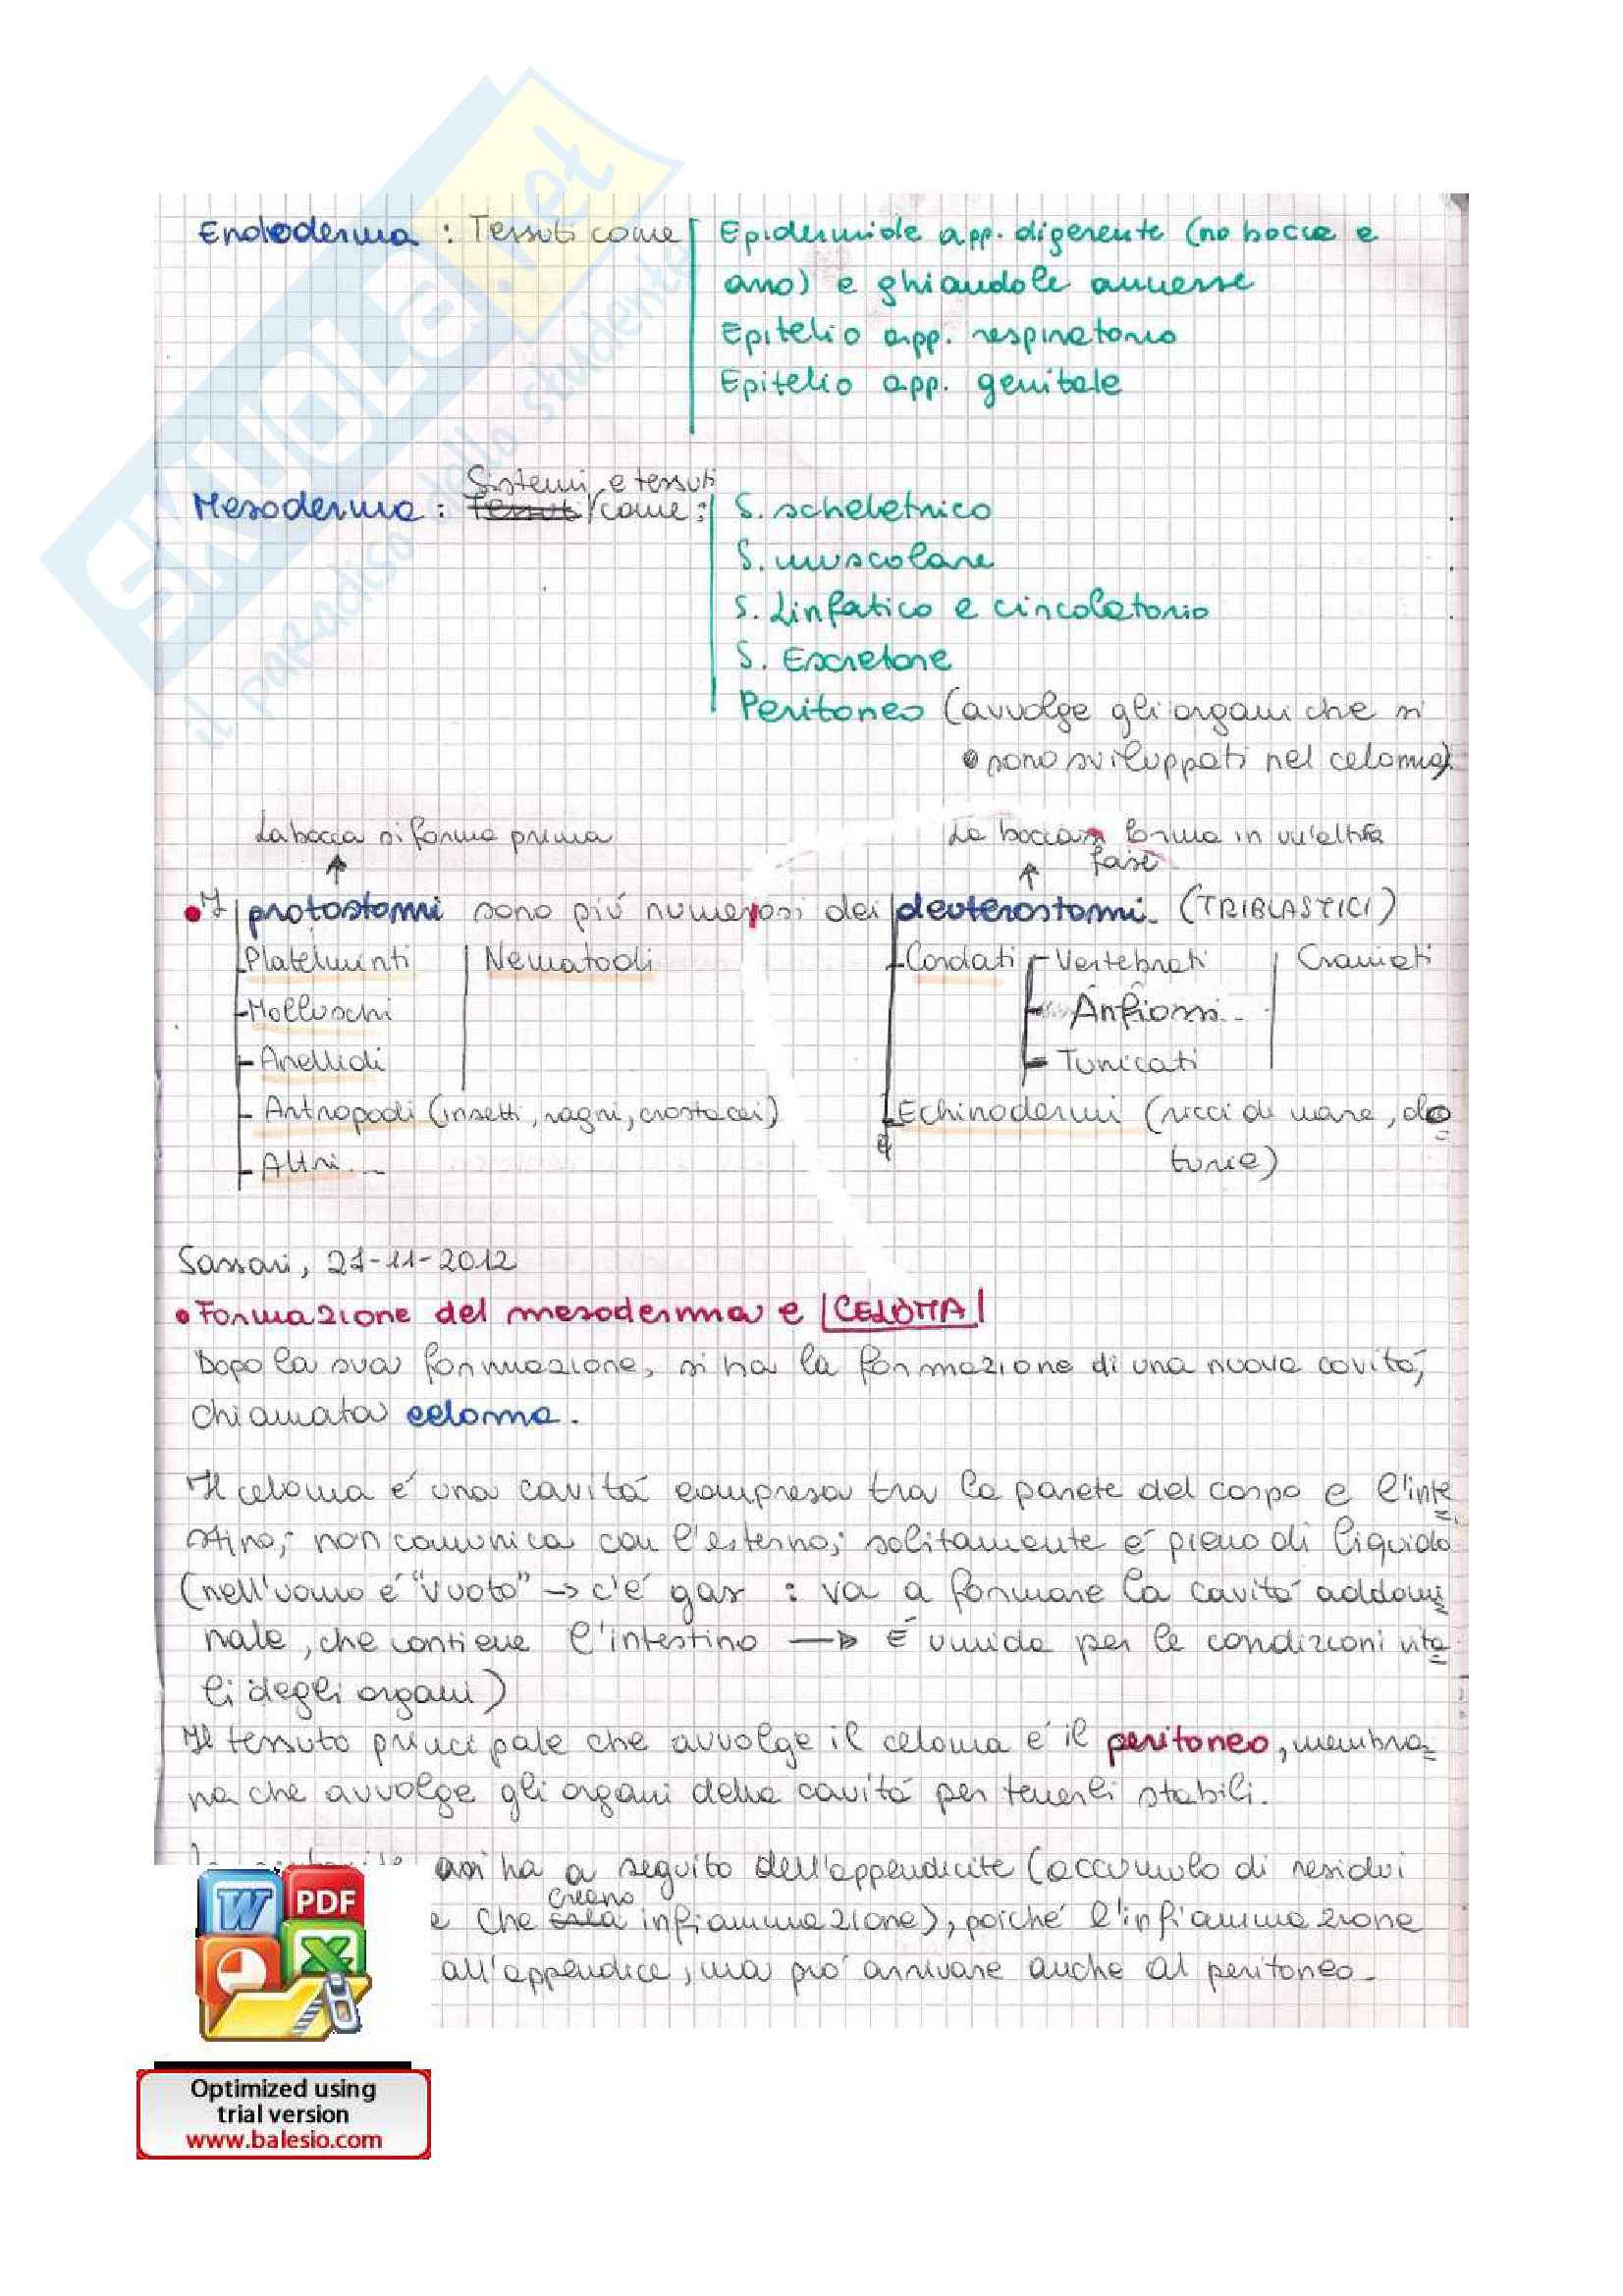 Endoderma : Tessuti come
Epidermide app. digerente (no bocca e
ano) e ghiandole annesse
Epitelio app. respiratorio
Epitelio app. genitale
Sistemi e tessuti
Mesoderma : Tessuti come :
S. scheletrico
S. muscolare
S. Linfatico e circolatorio
S. Escretore
Peritoneo (avvolge gli organi che si
sono sviluppati nel celoma)
La bocca si forma prima
La bocca si forma in un'altra
fase
• I protostomi sono più numerosi dei deuterostomi. (TRIBLASTICI)
Platelminti Nematodi Cordati Vertebrati Craniati
Molluschi Anfiossi..
Anellidi Tunicati
Artropodi (insetti, ragni, crostacei) Echinodermi (ricci di mare, olo
turie)
Altri...
Sassari, 21-11-2012
• Formazione del mesoderma e CELOMA
Dopo la sua formazione, si ha la formazione di una nuova cavità,
chiamata celoma.
Il celoma é una cavitá compresa tra la parete del corpo e l'inte
stino; non comunica con l'esterno; solitamente é pieno di liquido
(nell'uomo é "vuoto" → c'é gas : va a formare la cavitá addomi
nale, che contiene l'intestino → É umida per le condizioni vita
li degli organi)
Il tessuto principale che avvolge il celoma é il peritoneo, membra
na che avvolge gli organi della cavitá per tenerli stabili.
si ha a seguito dell'appendicite (accumulo di residui
creano
e che crea infiammazione), poiché l'infiammazione
all'appendice, ma puó arrivare anche al peritoneo.
SKUOLA.net
il paradiso dello studente
W PDF
X
Optimized using
trial version
www.balesio.com